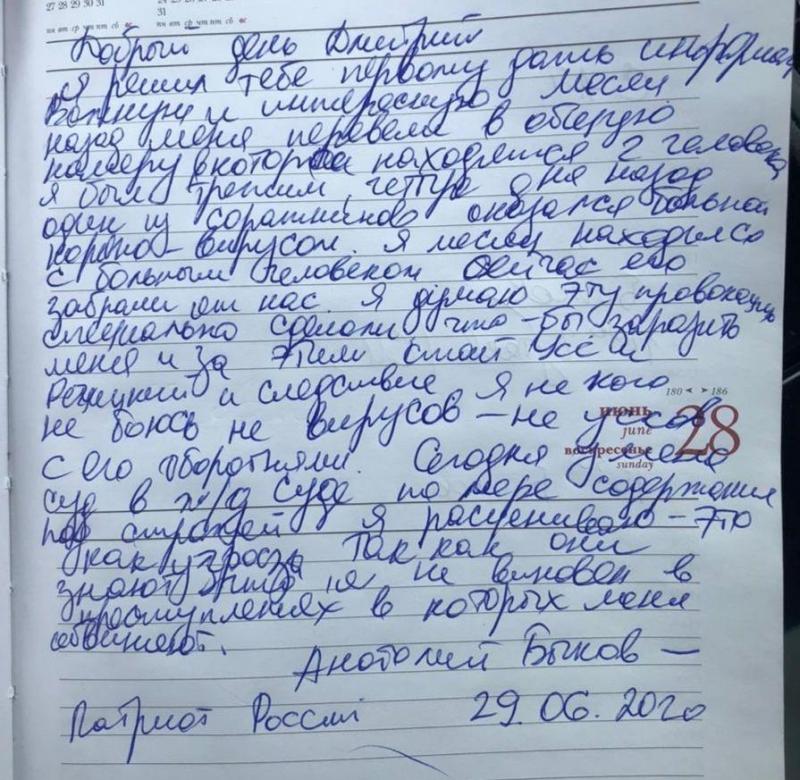 27 28 29 30 31
31
пн вт ср чт пт сб вс
пн вт ср чт пт сб вс
Добрый день Дмитрий
я решил тебе первому дать информац
важную и интересную месяц
назад меня перевели в общую
камеру в которой находятся 2 человека
я был третьим, четыре дня назад
один из соратников оказался больной
короно-вирусом. Я месяц находился
с больным человеком сейчас его
забрали от нас. Я думаю эту провокацию
специально сделали что-бы заразить
меня и за этим стоит Усс А.
и следствие я не кого
не боюсь не вирусов – не уссов
с его оборотнями. Сегодня у меня
суд в ж/д суде по мере содержания
под стражей я расцениваю – это
как угроза так как они
знают что я не виновен в
преступлениях в которых меня
обвиняют.
180 < > 186
июнь
june
28
воскресенье
sunday
Анатолий Быков –
Патриот России 29.06.2020